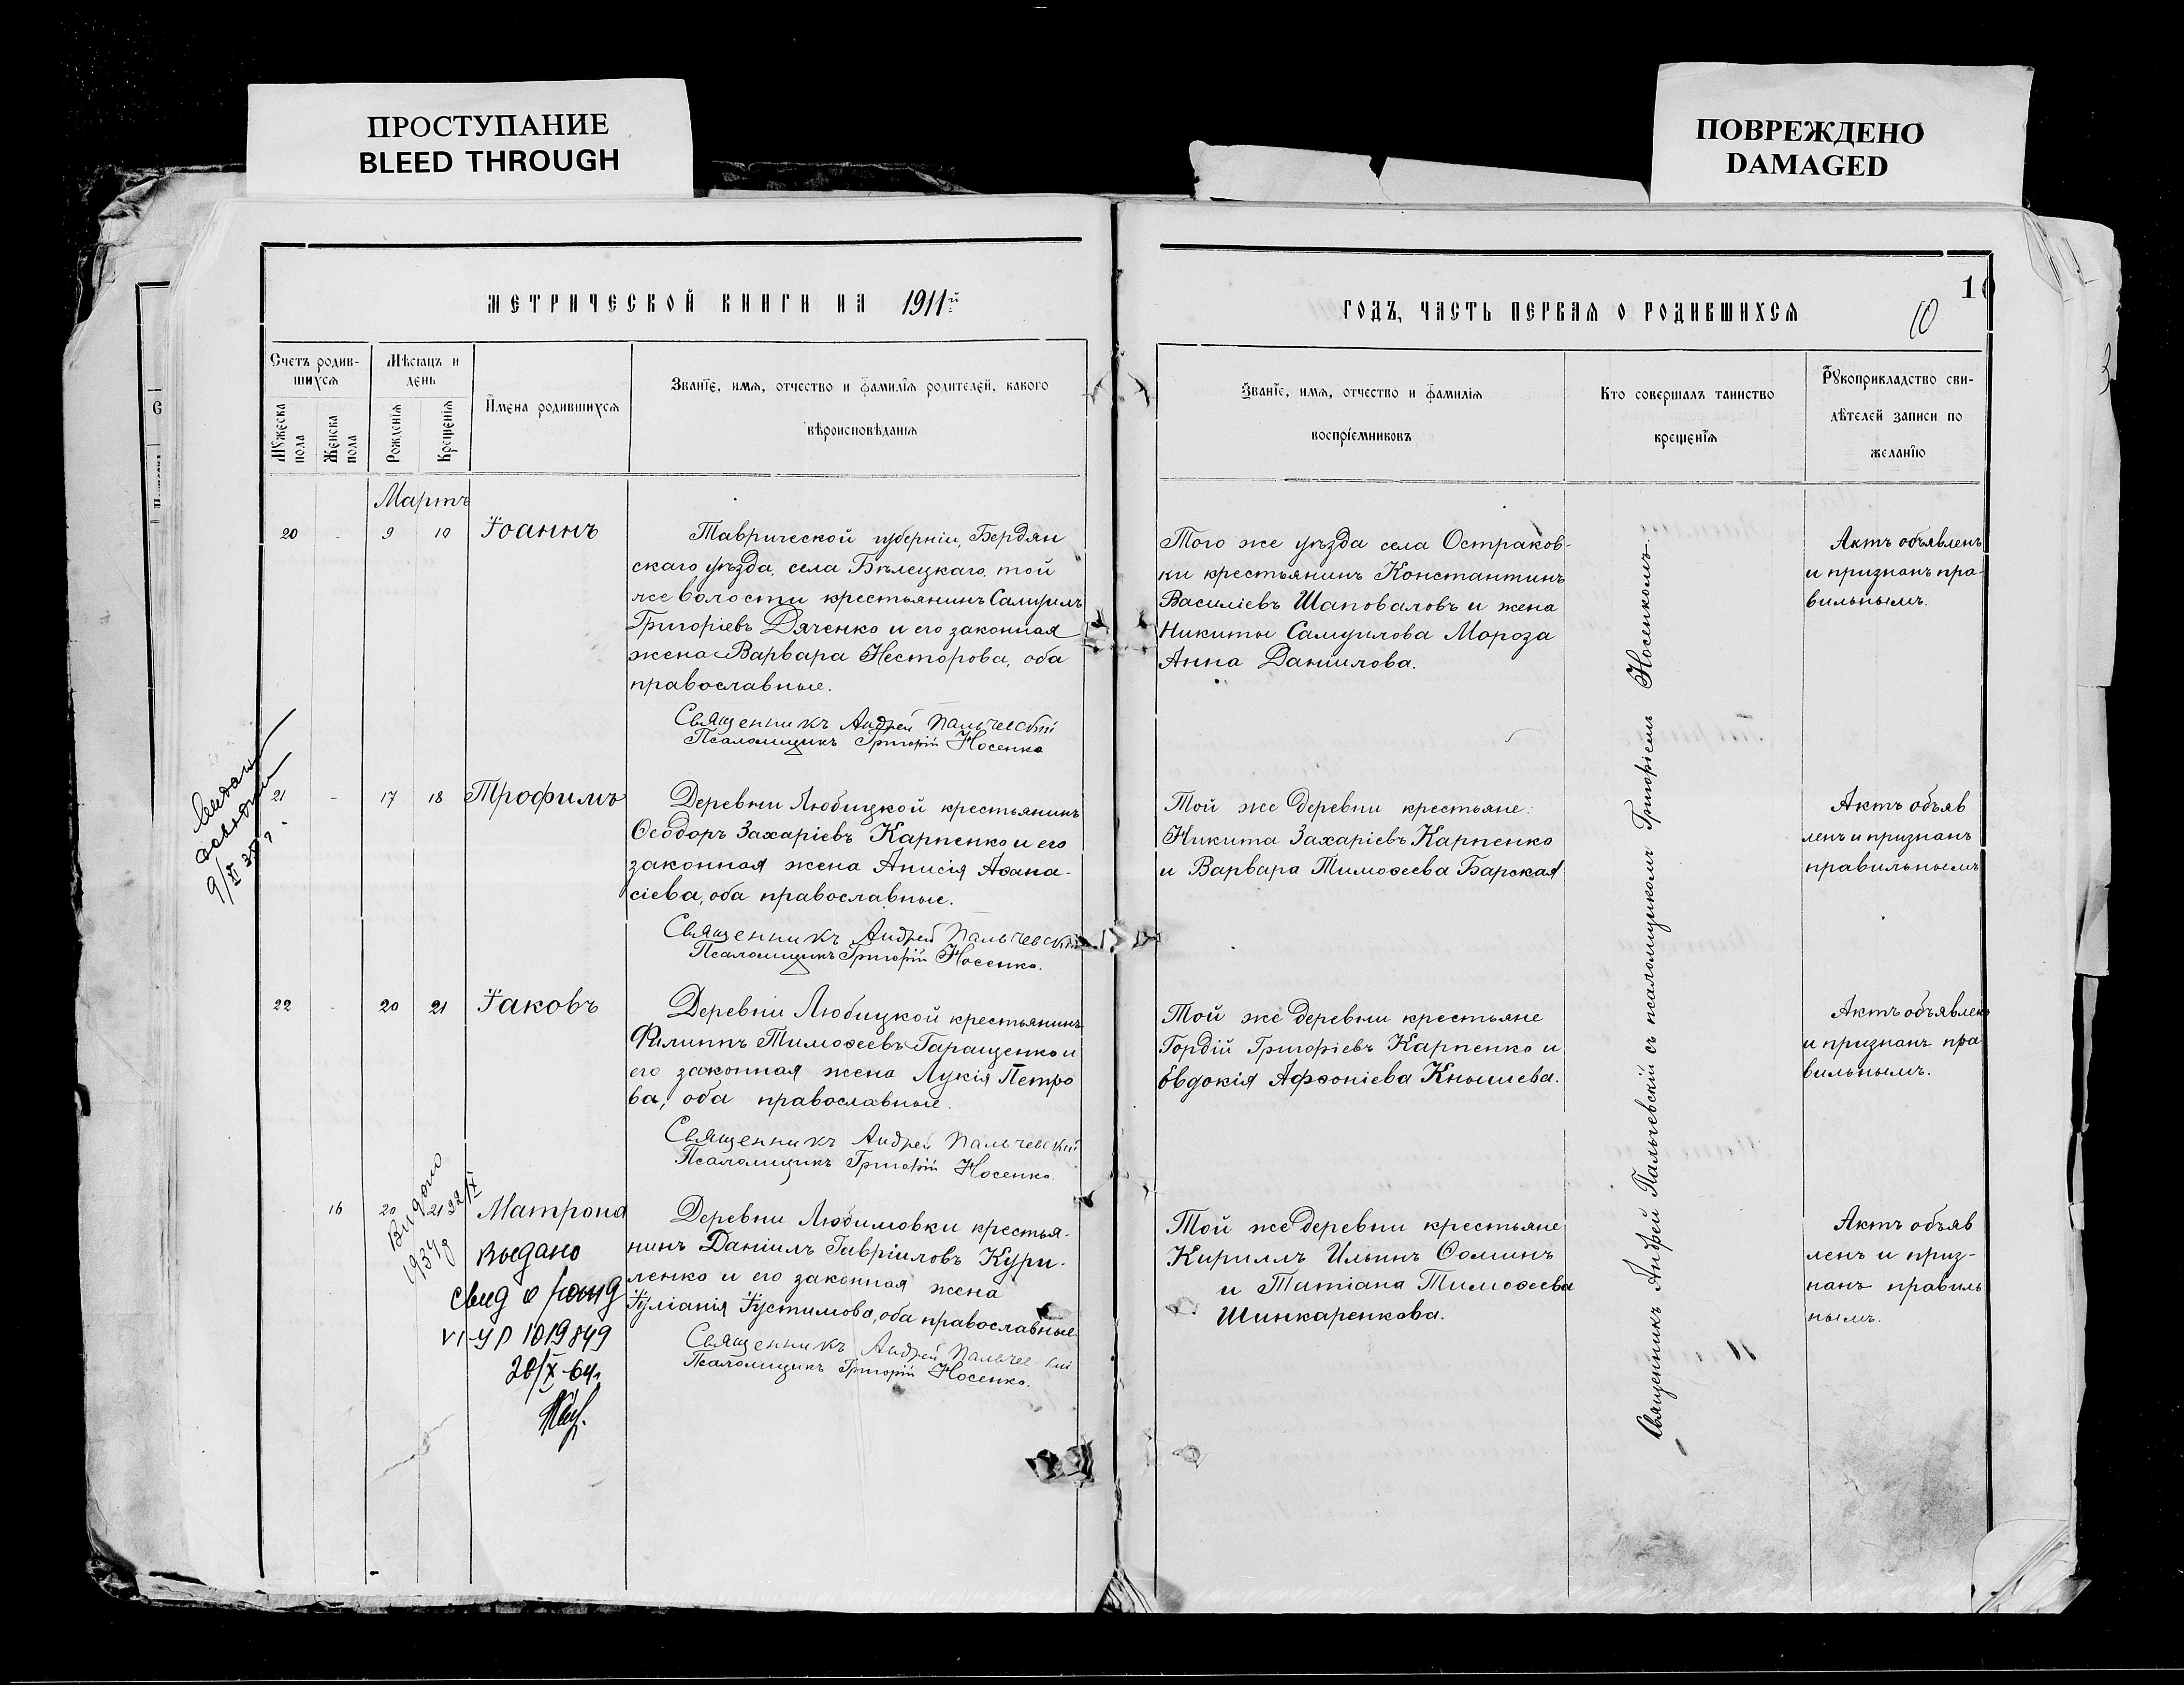 ПРОСТУПАНИЕ
BLEED THROUGH
ПОВРЕЖДЕНО
DAMAGED
МЕТРИЧЕСКОЙ КНИГИ НА 1911й
ГОДЪ, ЧАСТЬ ПЕРВАЯ О РОДИВШИХСЯ
10
10
3
Счетъ родив-
шихся
Мѣсяцъ и
день
Мужеска
пола
Женска
пола
Рожденія
Крещенія
Имена родившихся
Званїе, имя, отчество и фамилїя родителей, какого
вѣроисповѣданія
Званїе, имя, отчество и фамилія
воспрїемниковъ
Кто совершалъ таинство
крещенїя
Рукоприкладство сви-
дѣтелей записи по
желанїю
6
Мартъ
20 - 9 10 Іоаннъ
Таврической губерніи, Бердян
скаго уѣзда, села Бѣлецкаго, той
же волости крестьянинъ Самуилъ
Григоріевъ Дяченко и его законная
жена Варвара Несторова, оба
православные.
Священникъ Андрей Пальчевскій
Псаломщикъ Григорій Носенко
Того же уѣзда села Остраков-
ки крестьянинъ Константинъ
Василіевъ Шаповаловъ и жена
Никиты Самуилова Мороза
Анна Даниилова.
Актъ объявленъ
и признанъ пра-
вильнымъ.
21 - 17 18 Трофимъ
Деревни Любицкой крестьянинъ
Ѳеодоръ Захаріевъ Карпенко и его
законная жена Анисія Аѳана-
сіева, оба православные.
Священникъ Андрей Пальчевскій
Псаломщикъ Григорій Носенко.
Той же деревни крестьяне:
Никита Захаріевъ Карпенко
и Варвара Тимоѳеева Барская
Актъ объяв
ленъ и признанъ
правильнымъ
22 - 20 21 Іаковъ
Деревни Любицкой крестьянинъ
Филиппъ Тимоѳеевъ Гаращенко и
его законная жена Лукія Петро
ва, оба православные.
Священникъ Андрей Пальчевскій
Псаломщикъ Григорій Носенко.
Той же деревни крестьяне
Гордій Григоріевъ Карпенко и
Евдокія Афѳоніева Кнышева.
Актъ объявленъ
и признанъ пра
вильнымъ.
16 20 21 Матрона
Деревни Любимовки крестья-
нинъ Даніилъ Гавріиловъ Кури-
ленко и его законная жена
Іуліанія Іустимова, оба православные.
Священникъ Андрей Пальчевскій
Псаломщикъ Григорій Носенко.
Той же деревни крестьяне
Кириллъ Ильинъ Ѳоминъ
и Татіана Тимоѳеева
Шинкаренкова.
Актъ объяв
ленъ и приз-
нанъ правиль
нымъ.
Видано
22/IX
1934
Выдано
свид о рожд
VI-УР 1019849
20/X-64г
Священникъ Андрей Пальчевскій съ псаломщикомъ Григоріемъ Носенкомъ.